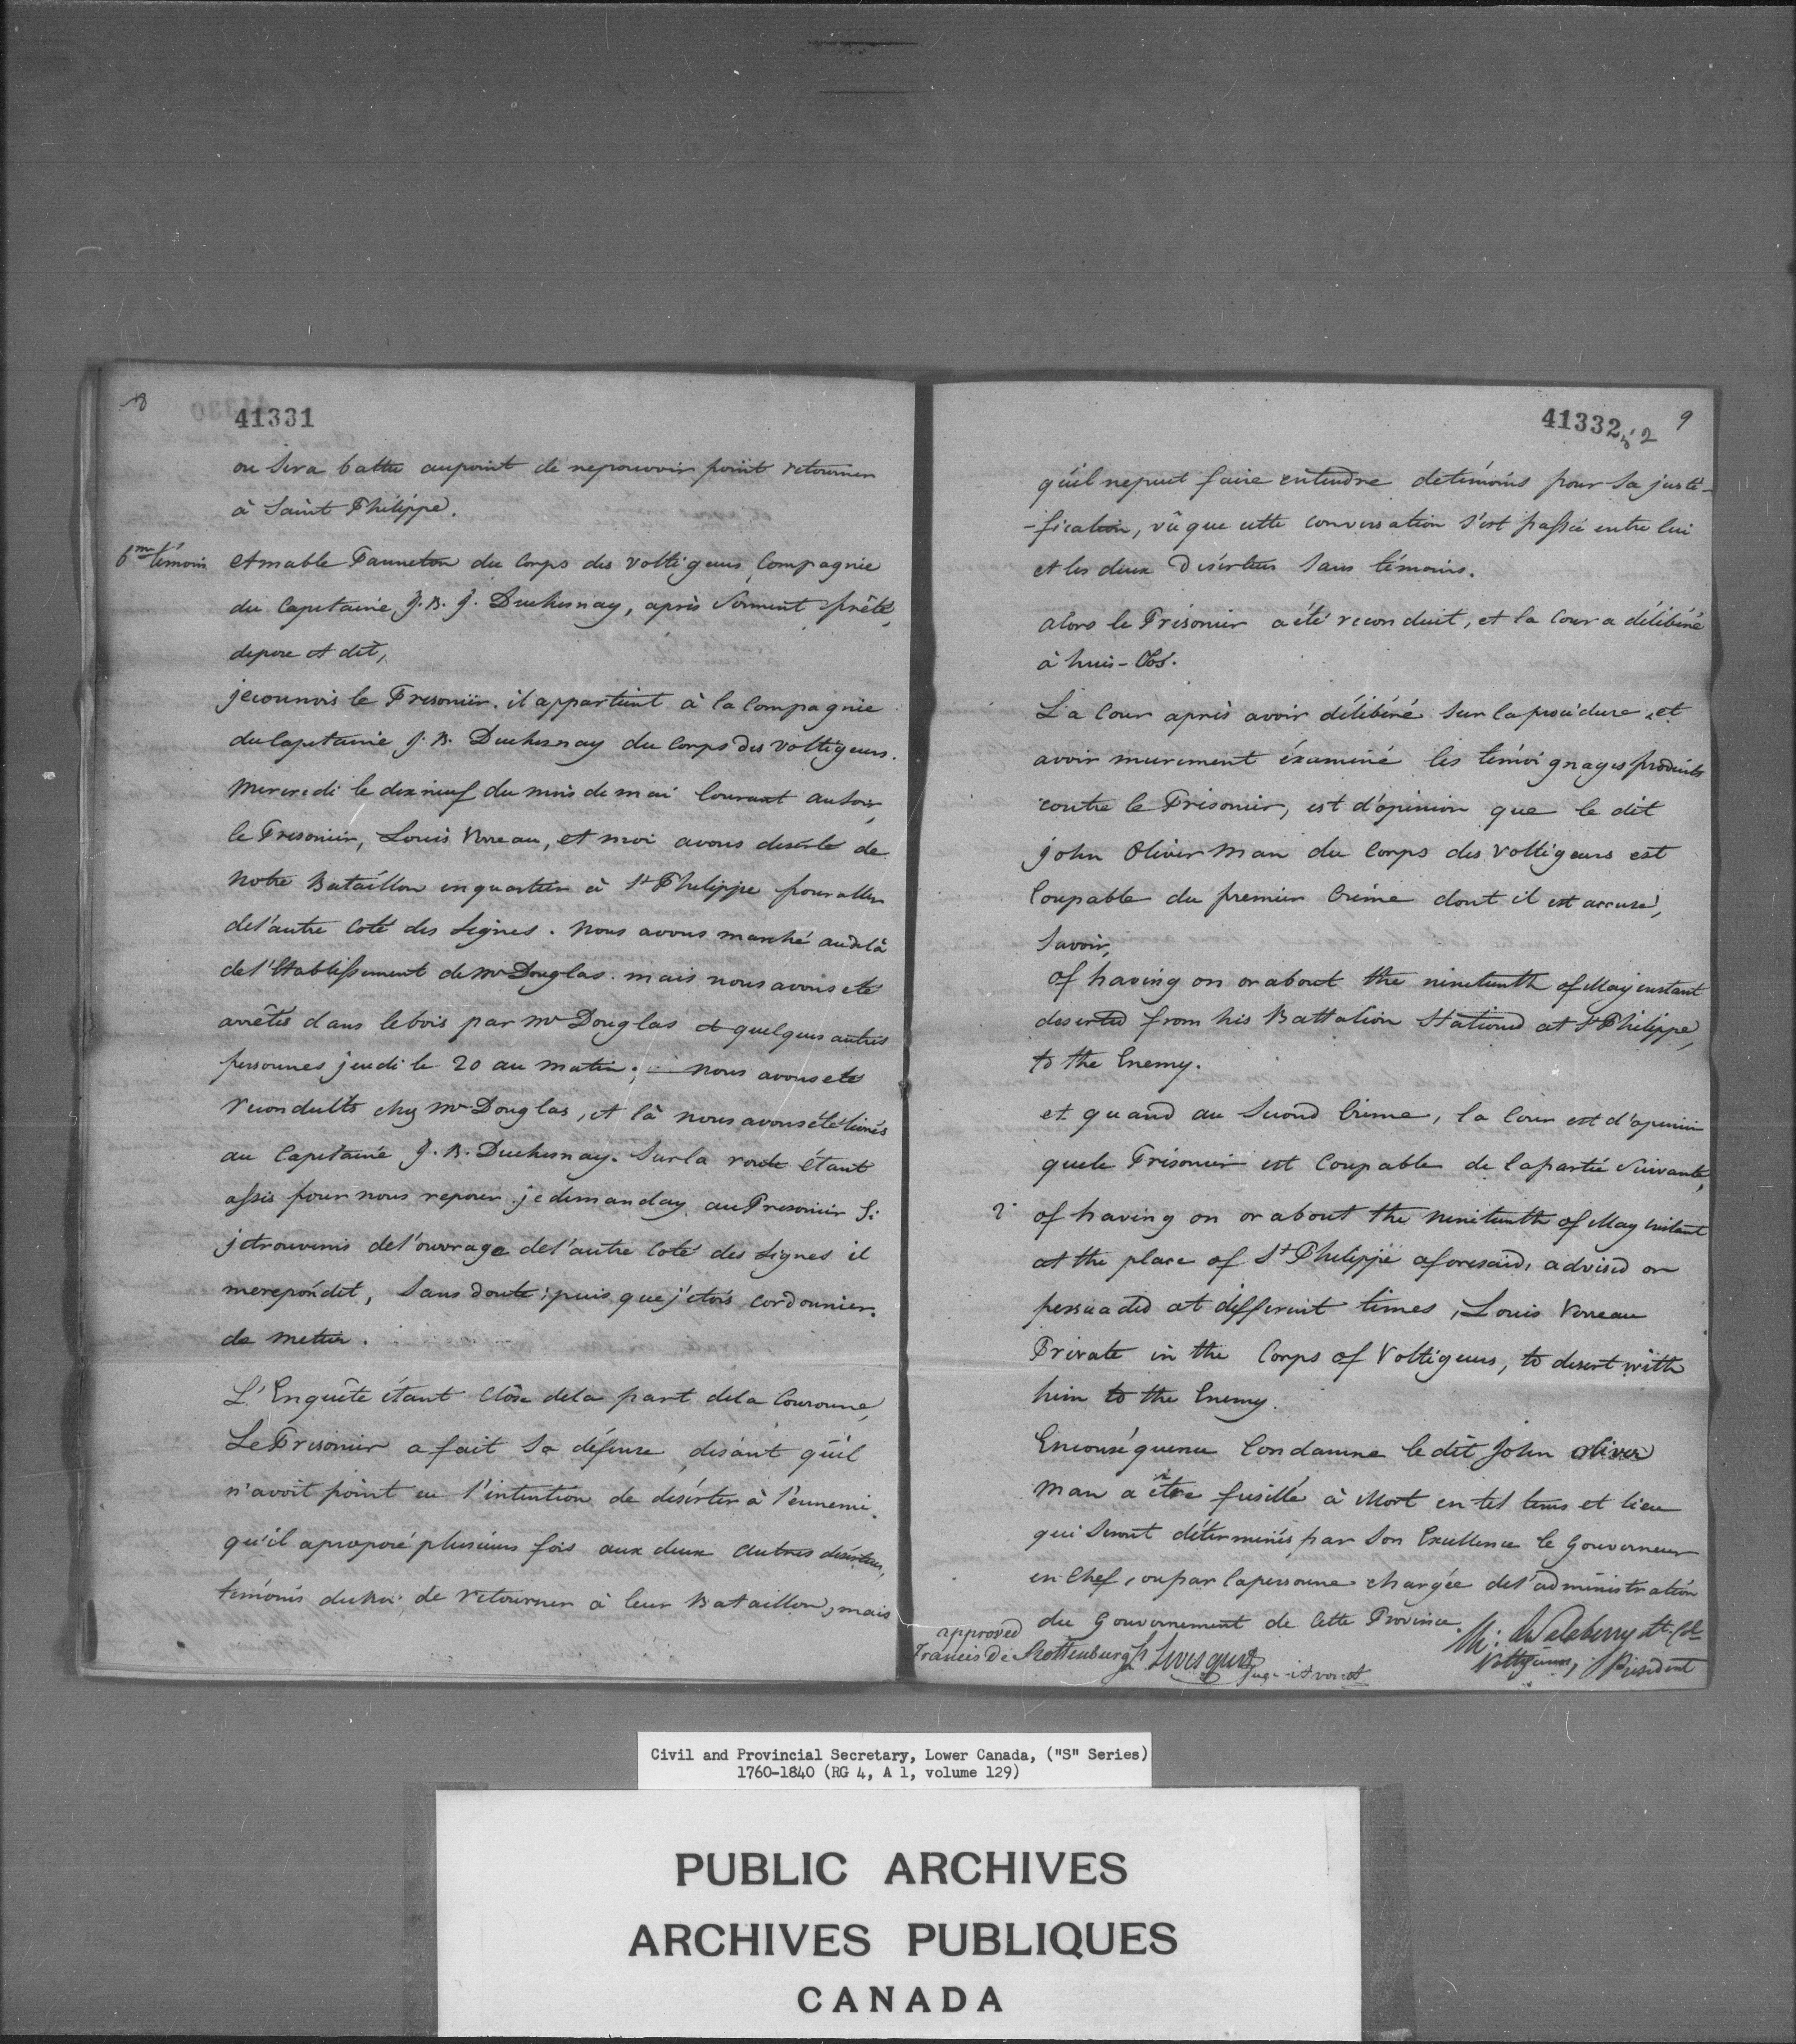 8
41331
ou sera battu aupoint de nepouvoir point retourner
à Saint Philippe.
6me témoin Amable Fanneton du Corps des Voltigeurs, Compagnie
du Capitaine J. B. J. Duchesnay, après Serment prêté,
depose et dit,
jeconnois le Prisonier. il appartient à la Compagnie
duCapitaine J. B. Duchesnay du Corps des Voltigeurs.
Mercredi le dixneuf du mois de mai Courant ausoir,
le Prisonier, Louis Verreau, et moi avons déserté de
Notre Bataillon enquartier à St Philippe pouraller
del'autre Coté des Lignes. Nous avons marché audelà
del'Etablissement de Mr Douglas. mais nous avons été
arrêtés dans lebois par Mr Douglas et quelques autres
personnes jeudi le 20 au matin; nous avonsété
reconduits chez Mr Douglas, et là nous avonsété livrés
au Capitaine J. B. Duchesnay. Surla route étant
assis pour nous reposer jedemanday auPrisonier Si
jetrouverois del'ouvrage del'autre Coté des Lignes il
merepondit, Sans doute; puis que j'étois cordonnier
de metier.
L'Enquête étant Close dela part dela Couronne,
LePrisonier a fait Sa défense, disant qu'il
n'avoit point eu l'intention de déserter à l'ennemi,
qu'il aproposé plusieurs fois aux deux autres déserteurs,
témoins duRoi, de retourner à leur Bataillon, mais
41332
9
qu'il nepeut faire entendre detémoins pour Sa justi-
-fication, vû que cette conversation s'est passée entre lui
et les deux Déserteurs Sans témoins.
alors le Prisonier a été reconduit, et la Cour a délibéré
à huis-Clos.
La Cour après avoir délibéré Sur laprocédure, et
avoir murement éxaminé les témoignages produits
contre le Prisonier, est d'opinion que le dit
John Oliver Man du Corps des Voltigeurs est
Coupable du premier Crime dont il est accusé,
Savoir,
of having on or about the nineteenth of May instant
deserted from his Battalion Stationed at St Philippe,
to the Enemy.
et quand au Second Crime, la Cour est d'opinion
quele Prisonier est Coupable de lapartie Suivante,
2° of having on or about the nineteenth of May instant
at the place of St Philippe aforesaid, advised or
persuaded at different times, Louis Verreau
Private in the Corps of Voltigeurs, to desert with
him to the Enemy.
Enconséquence Condamne le dit John Oliver
Man a être fusillé à Mort en tel tems et lieu
qui Seront déterminés par Son Excellence le Gouverneur
en Chef, oupar lapersonne chargée del'administration
du Gouvernement de Cette Province.
approved
Francis De Rottenburg
Levesque
Juge-Avocat
Ch: de Salaberry Lt. Col.
Voltigeurs, Président
Civil and Provincial Secretary, Lower Canada, ("S" Series)
1760-1840 (RG 4, A 1, volume 129)
PUBLIC ARCHIVES
ARCHIVES PUBLIQUES
CANADA